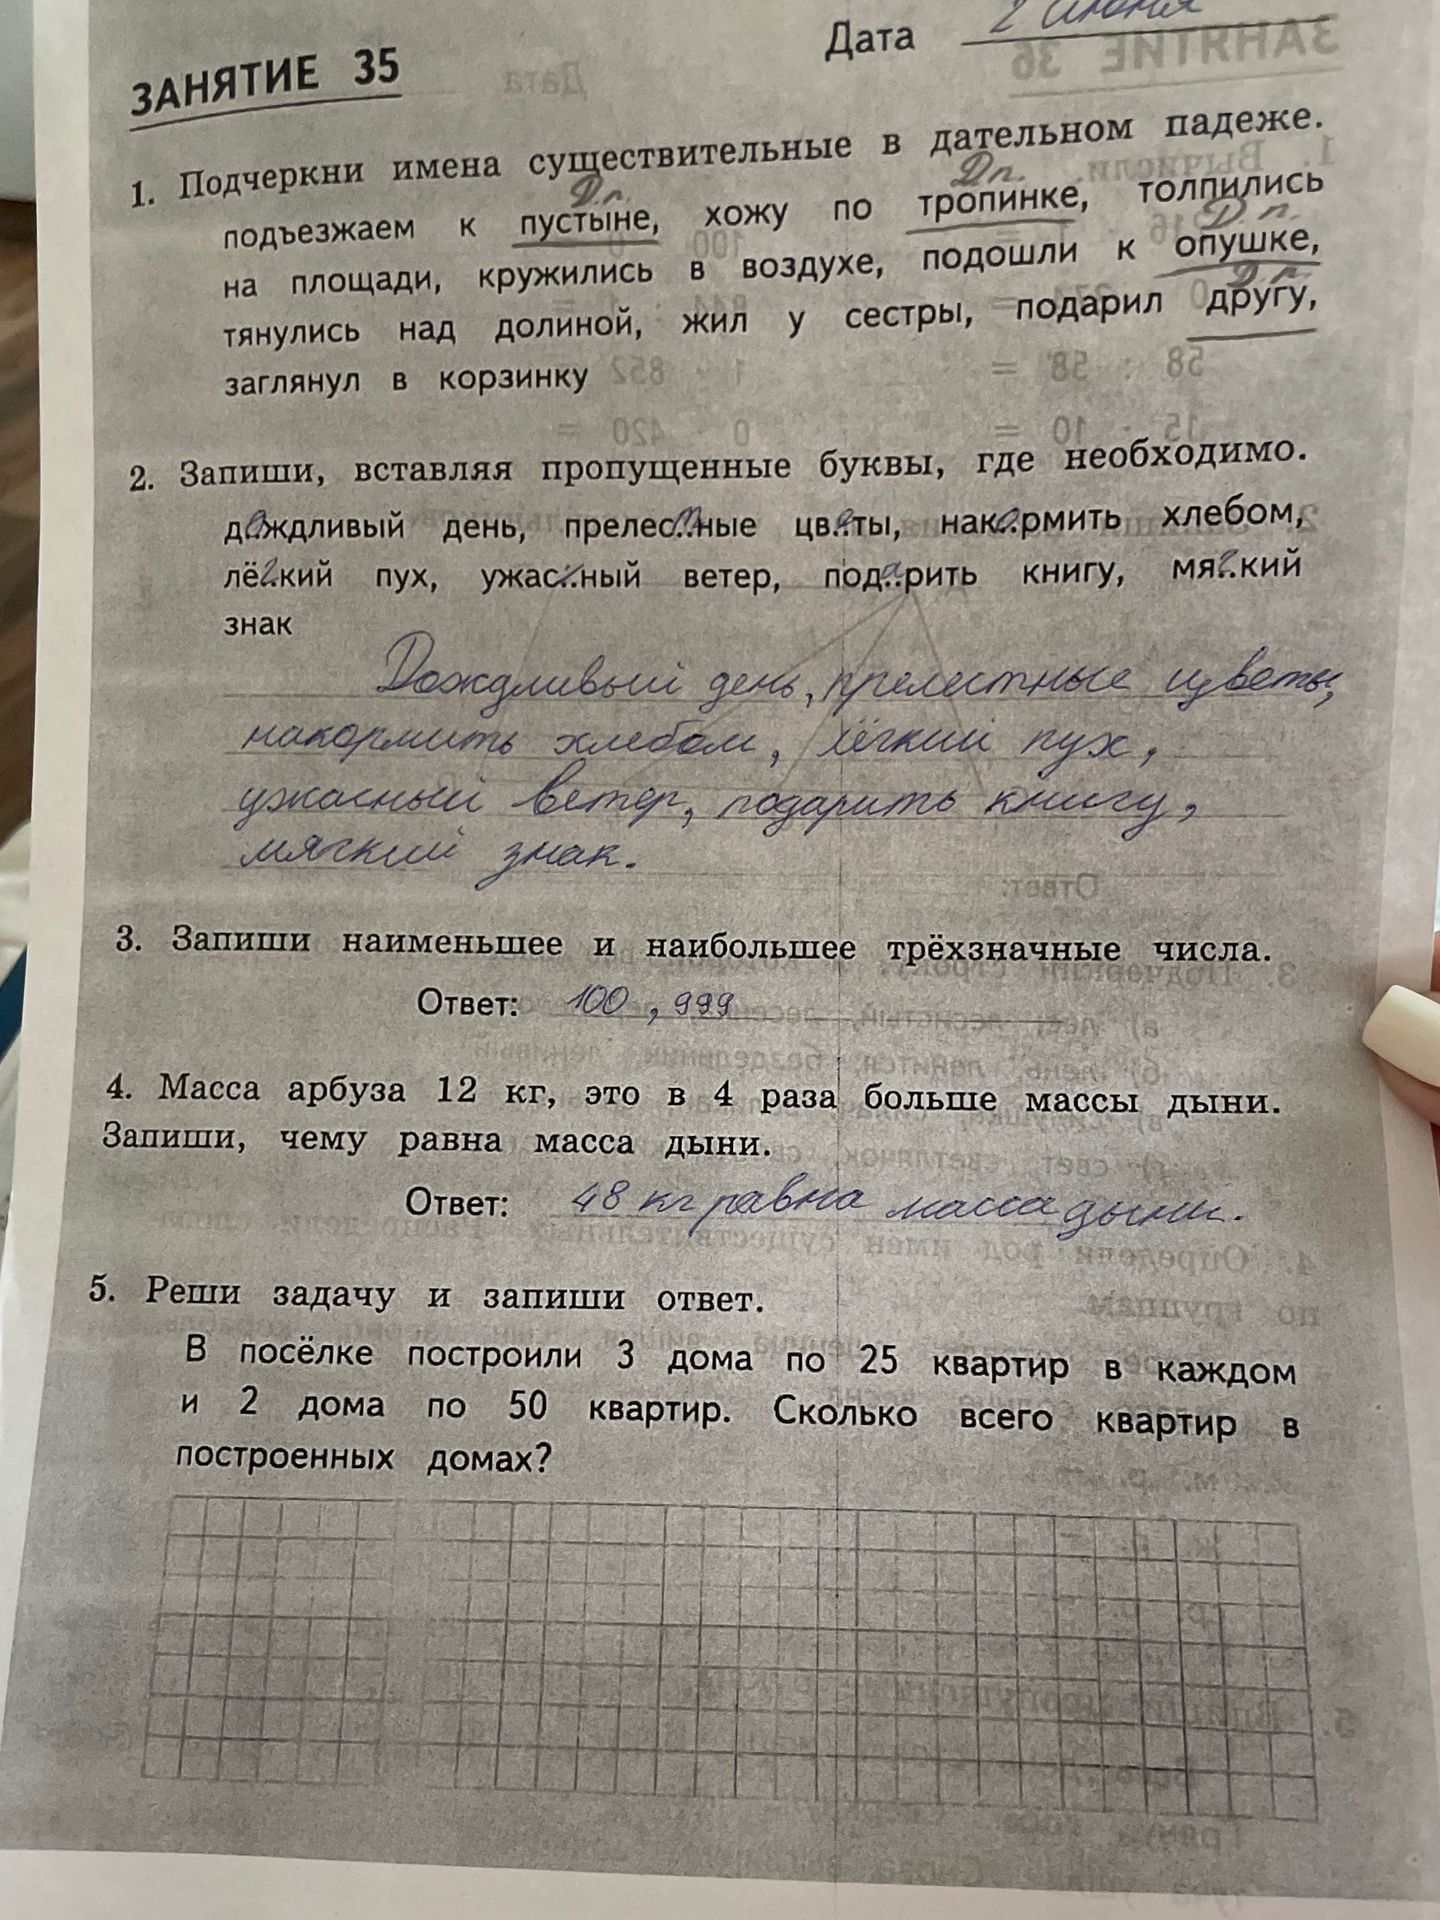 Дата 2 июня
ЗАНЯТИЕ 35
1. Подчеркни имена существительные в дательном падеже.
Д.п. Дп.
подъезжаем к пустыне, хожу по тропинке, толпились
Д п.
на площади, кружились в воздухе, подошли к опушке,
Д.п.
тянулись над долиной, жил у сестры, подарил другу,
заглянул в корзинку
2. Запиши, вставляя пропущенные буквы, где необходимо.
дождливый день, прелестные цветы, накормить хлебом,
лёгкий пух, ужас..ный ветер, подарить книгу, мягкий
знак
Дождливый день, прелестные цветы,
накормить хлебом, лёгкий пух,
ужасный ветер, подарить книгу,
мягкий знак.
3. Запиши наименьшее и наибольшее трёхзначные числа.
Ответ: 100, 999
4. Масса арбуза 12 кг, это в 4 раза больше массы дыни.
Запиши, чему равна масса дыни.
Ответ: 48 кг равна масса дыни.
5. Реши задачу и запиши ответ.
В посёлке построили 3 дома по 25 квартир в каждом
и 2 дома по 50 квартир. Сколько всего квартир в
построенных домах?